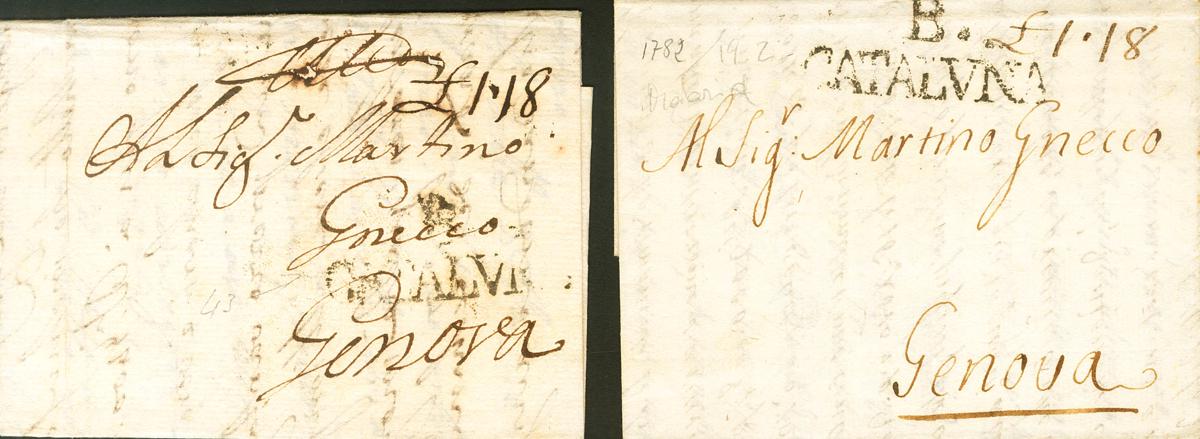 £ 1.18
Al Sigr. Martino
Gnecco
B.
CATALVÑ
Genova
43
B. £ 1.18
1782 / 19-2-
CATALVÑA
Al Sigr. Martino Gnecco
Genova